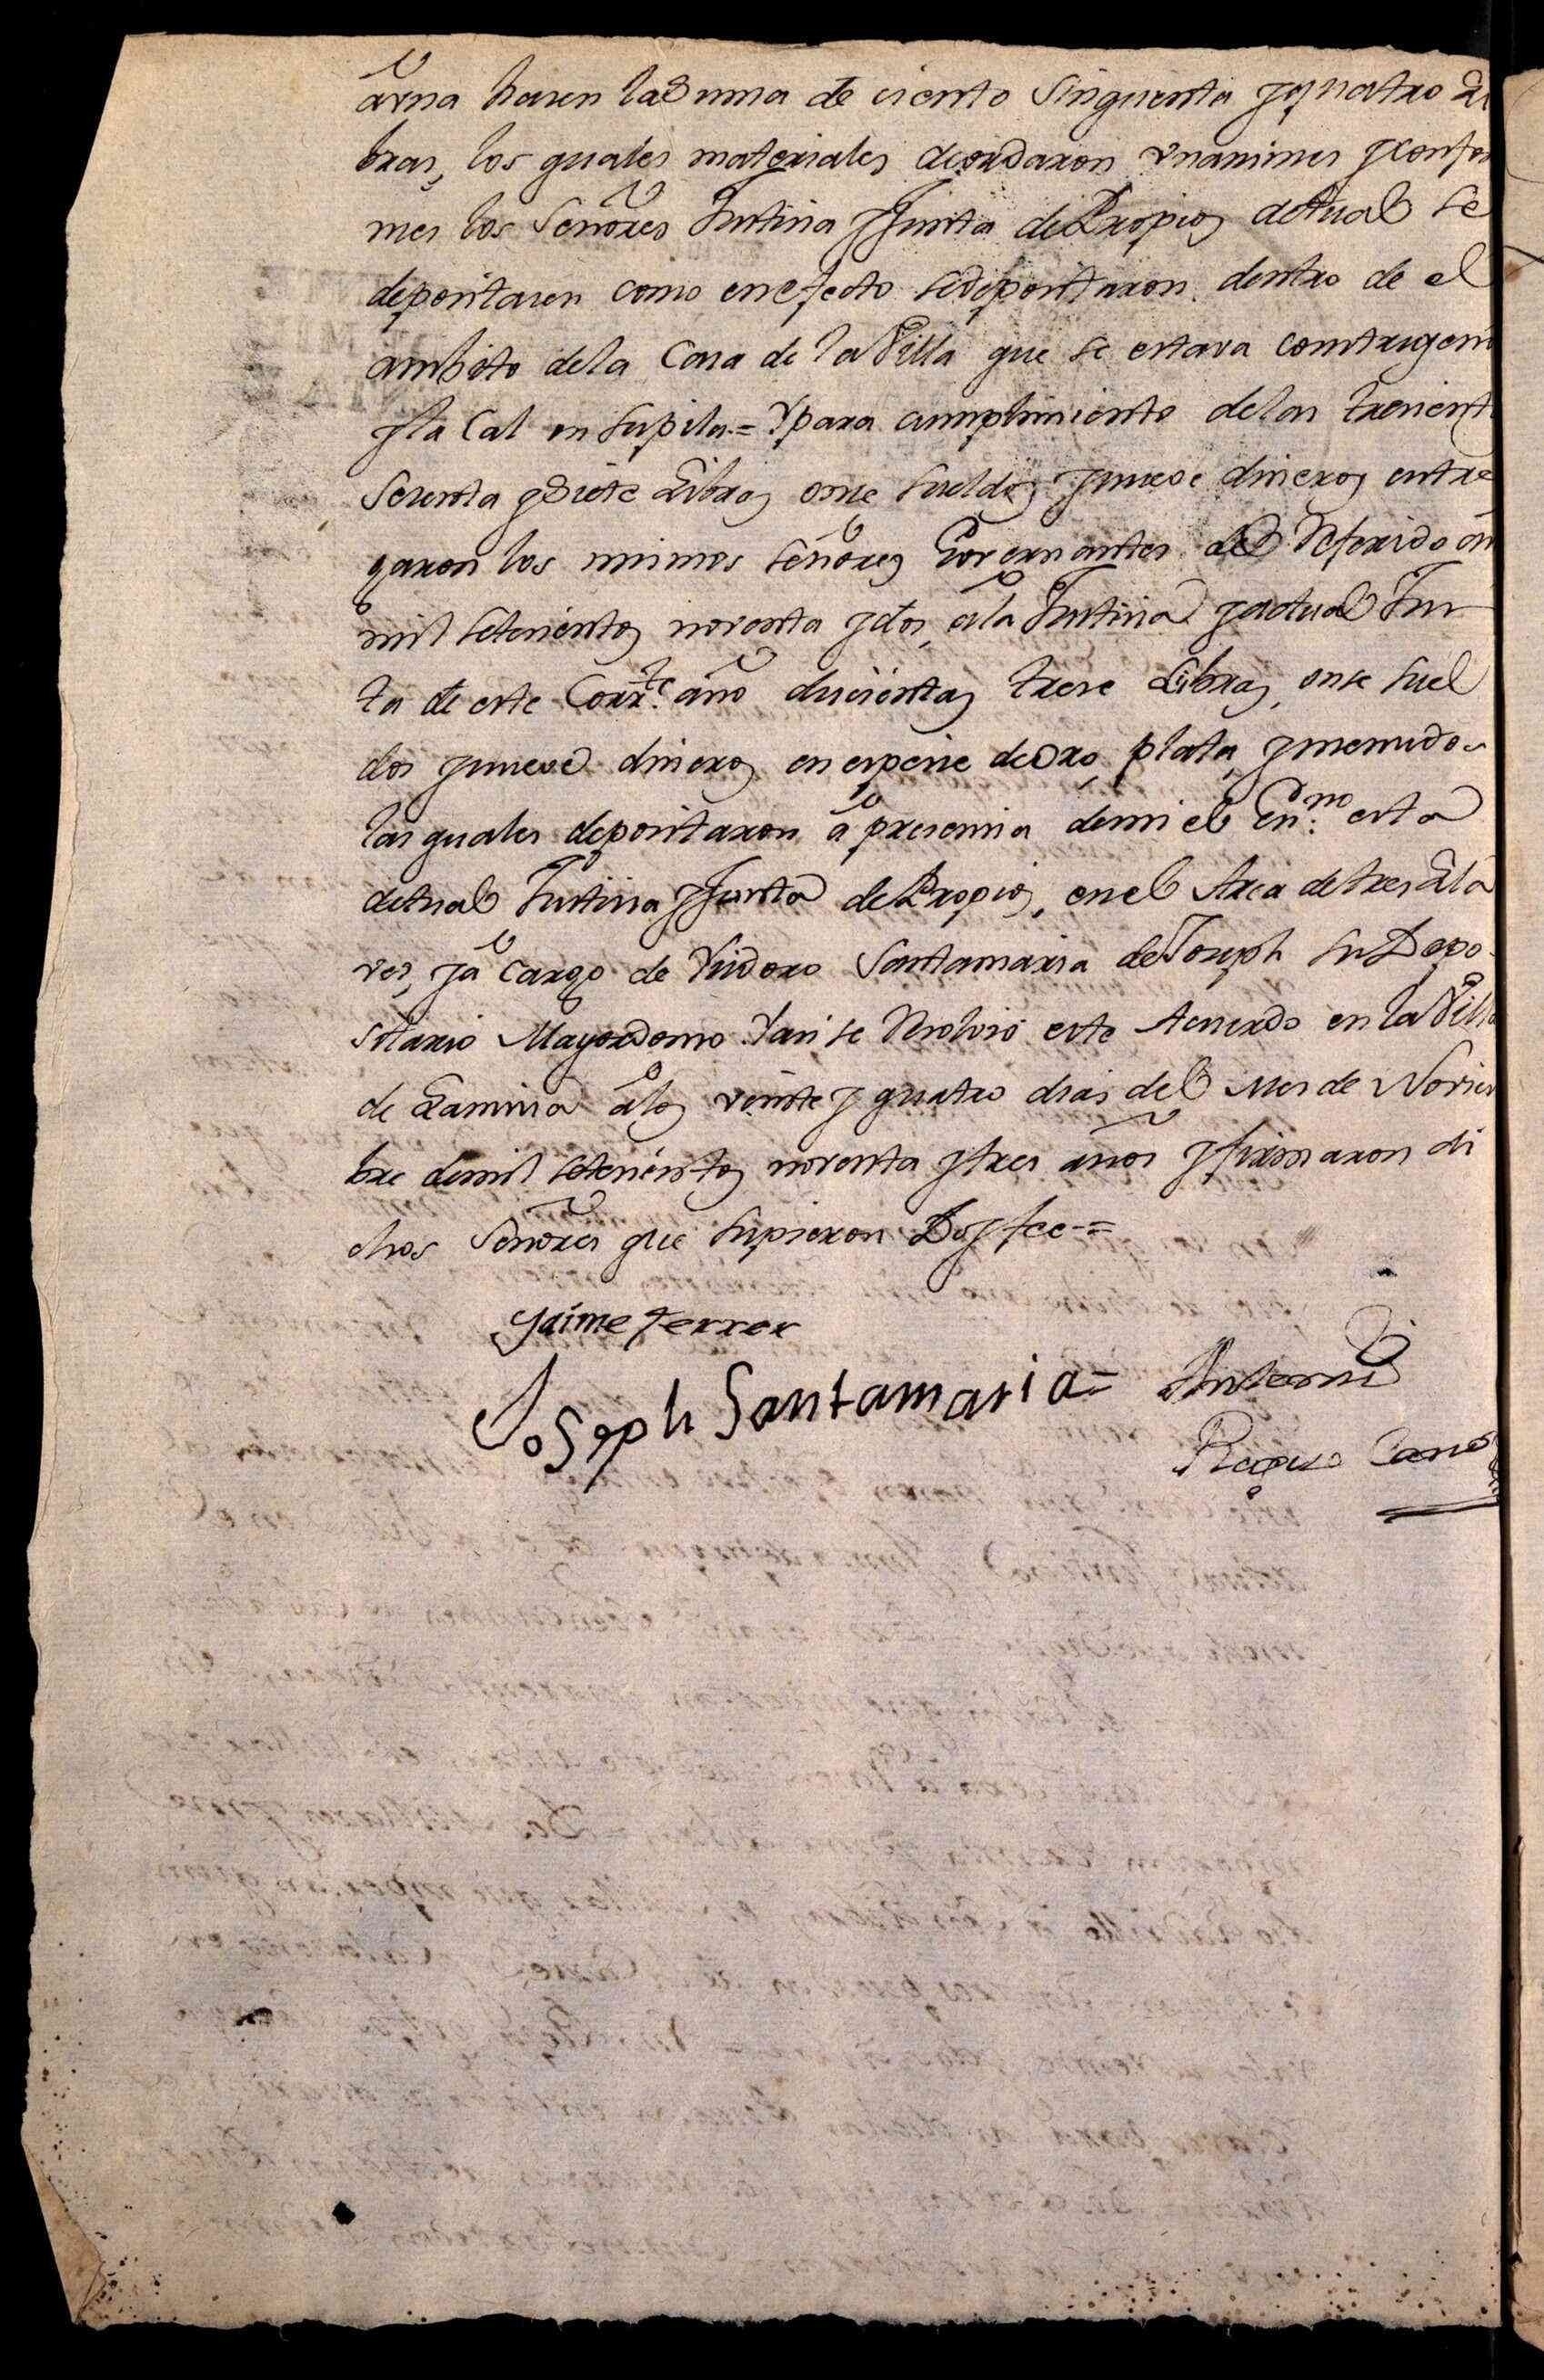 arna hasen la Suma de ciento Sinquenta y quatro Li
bras, los quales materiales acordaron unanimes y confor
mes los Señores Justicia y Junta de Propios actual se
depositasen como en efecto se depositaron dentro de el
ambito de la Casa de la Villa que se estava construyen
y la Cal en su pila = Y para cumplimiento de las tresient
Sesenta y Siete Libras onse sueldos y nueve dineros entre
garon los mismos señores Governantes del Referido añ
mil setesientos noventa y dos, a la Justicia y actual Jun
ta de este Corr.te año dusientas trese Libras, onse suel
dos y nueve dineros en espesie de Oro, plata, y menudos
las quales depositaron á presencia de mi el Es.no esta
actual Justicia y Junta de Propios, en el Arca de tres Lla
ves, y á cargo de Ysidoro Santamaria de Joseph su Depo
sitario Mayordomo. Y asi se Resolvió este Acuerdo en la Villa
de á los veinte y quatro dias del Mes de Noviem
bre de mil setesientos noventa y tres años y firmaron di
chos Señores que supieron Doy fee =
Jaime ferrer
Joseph Santamaria = Antemi
Roque Cano